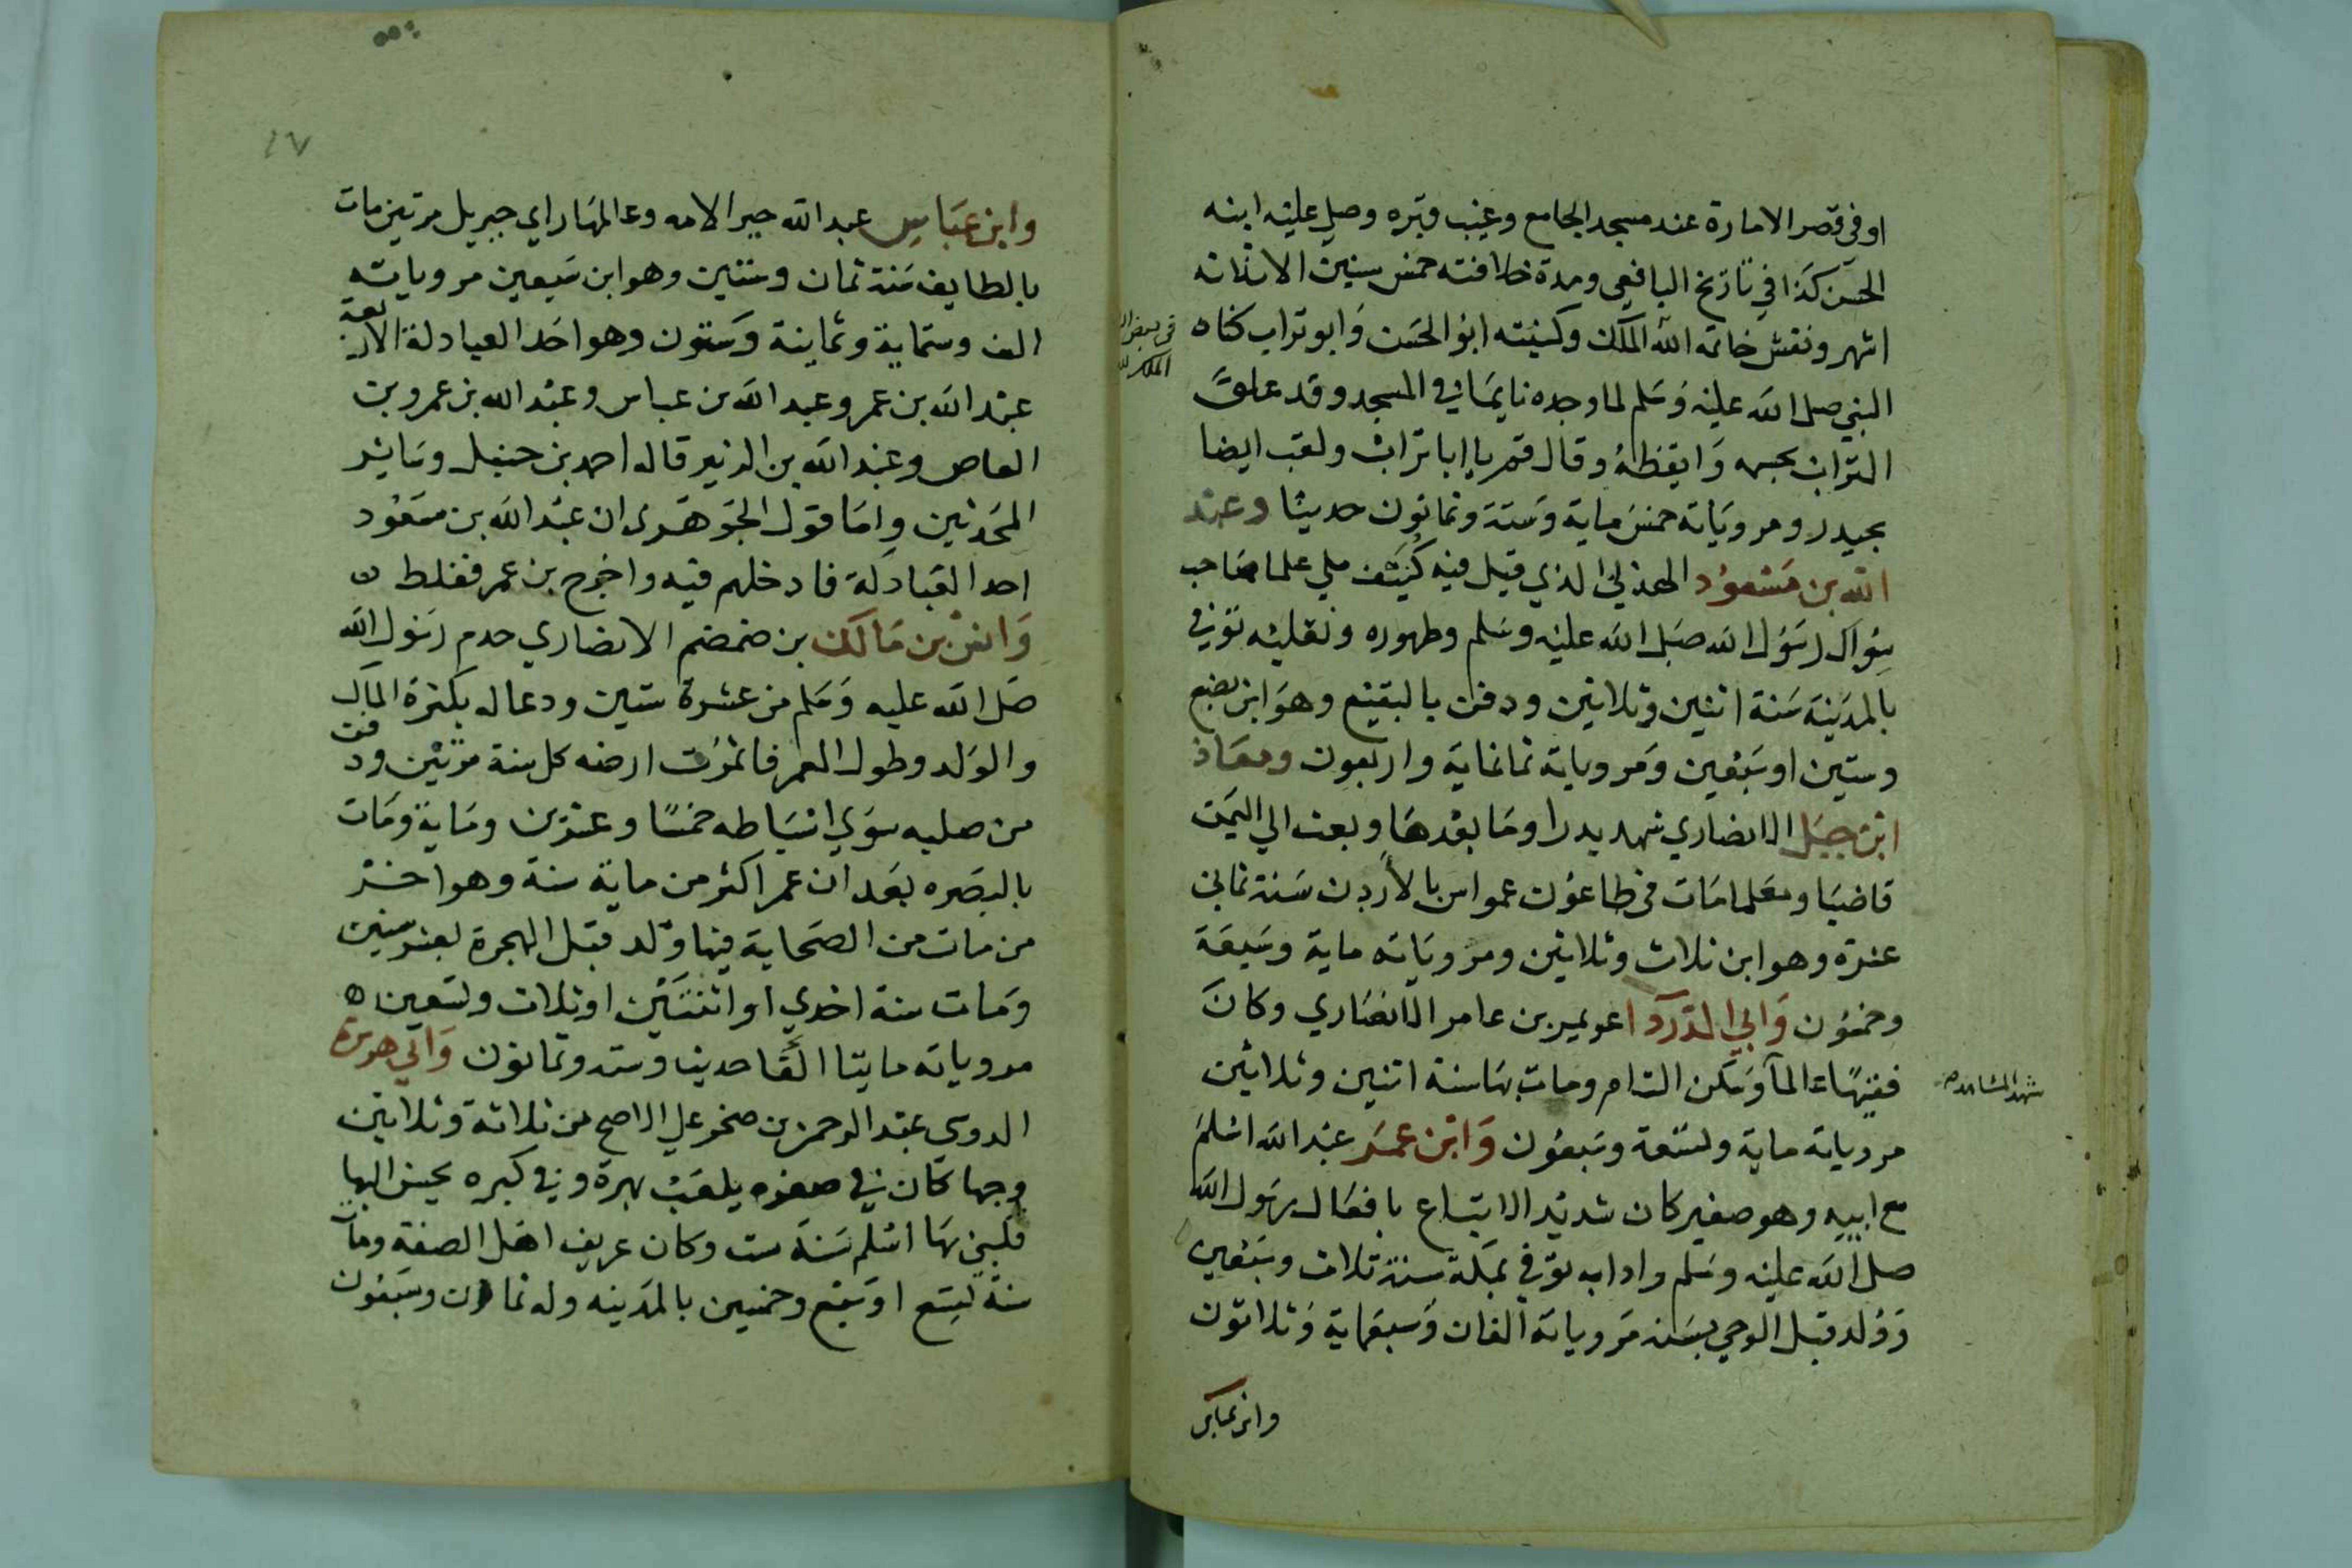 او في قصر الامارة عند مسجد الجامع وغيب قبره وصلي عليه ابنه
الحسن كذا في تاريخ اليافعي ومدة خلافته خمس سنين الا ثلاثه
اشهر ونقش خاتمه الله الملك وكنيته ابو الحسن وابو تراب كناه
النبي صلى الله عليه وسلم لما وجده نايما في المسجد وقد علق
التراب بجسمه وايقظه وقال قم يا ابا تراب ولقب ايضا
بحيدر ومروياته خمس ماية وستة وثمانون حديثا وعبد
الله بن مسعود الهذلي الذي قيل فيه كنيف ملي علما صاحب
سواك رسول الله صلى الله عليه وسلم وطهوره ونعليه توفي
بالمدينه سنة اثنين وثلاثين ودفن بالبقيع وهو ابن بضع
وستين او سبعين ومروياته ثمانماية واربعون ومعاذ
ابن جبل الانصاري شهد بدرا وما بعدها وبعث الي اليمن
قاضيا ومعلما مات في طاعون عمواس بالاردن سنة ثماني
عشرة وهو ابن ثلاث وثلاثين ومروياته ماية وسبعة
وخمسون وابي الدردا عويمر بن عامر الانصاري وكان
فقيها عالما وسكن الشام ومات بها سنة اثنين وثلاثين
شهد المشاهد
مروياته ماية وتسعة وسبعون وابن عمر عبد الله اسلم
مع ابيه وهو صغير كان شديد الاتباع بافعال رسول الله
صلى الله عليه وسلم وادابه توفي بمكة سنة ثلاث وسبعين
وولد قبل الوحي بسنه مروياته الفان وسبعماية وثلاثون
وابن عباس
وابن عباس عبد الله حبر الامه وعالمها راي جبريل مرتين مات
بالطايف سنة ثمان وستين وهو ابن سبعين مروياته
الف وستماية وثماينة وستون وهو احد العبادلة الاربعة
عبد الله بن عمر وعبد الله بن عباس وعبد الله بن عمرو بن
العاص وعبد الله بن الزبير قاله احمد بن حنبل وسائر
المحدثين واما قول الجوهري ان عبد الله بن مسعود
احد العبادلة فادخلهم فيه واخرج بن عمر فغلط
وانس بن مالك بن ضمضم الانصاري خدم رسول الله
صلى الله عليه وسلم من عشرة سنين ودعا له بكثرة المال
والولد وطول العمر فاثمرت ارضه كل سنة مرتين ودفن
من صلبه سوي اسباطه خمسا وعشرين وماية ومات
بالبصره بعد ان عمر اكثر من ماية سنة وهو اخر
من مات من الصحابة فيها ولد قبل الهجرة بعشر سنين
ومات سنة احدي او اثنتين او ثلاث وتسعين
مروياته مايتا الفا حديث وستة وثمانون وابي هريرة
الدوسي عبد الرحمن بن صخر علي الاصح من ثلاثة وثلاثين
وجها كان في صغره يلعب بهرة وفي كبره يحسن اليها
فكني بها اسلم سنة ست وكان عريف اهل الصفة ومات
سنة تسع او سبع وخمسين بالمدينه وله ثمان وسبعون